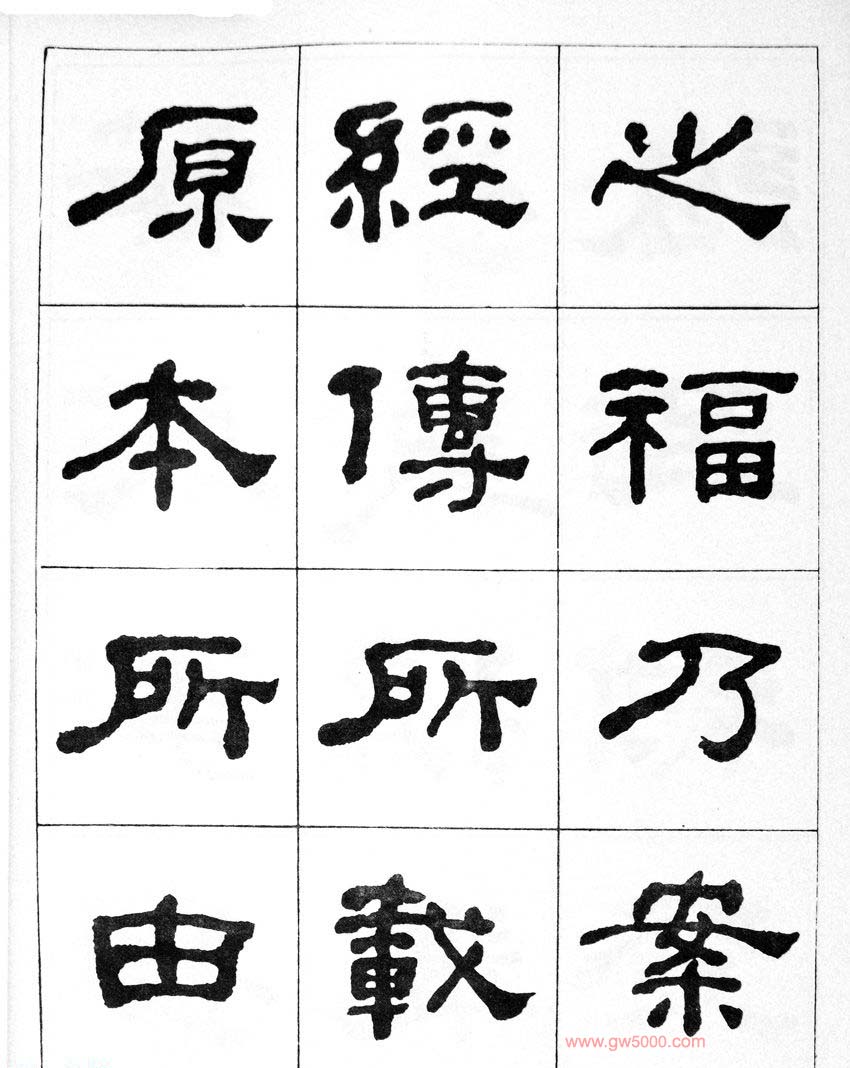 之福乃案
經傳所載
原本所由
www.gw5000.com